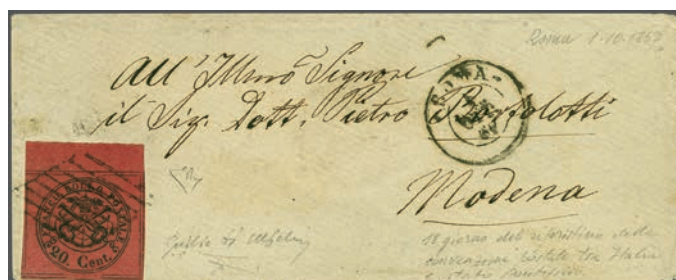 Roma 1.10.1867
All' Illmo Signore
il Sig. Dott. Pietro Bortolotti
ROMA
67
Modena
FRANCO BOLLO POSTALE
20 Cent.
18 giorno del ripristino delle
comunicazioni postali tra Italia
e Stato Pontificio